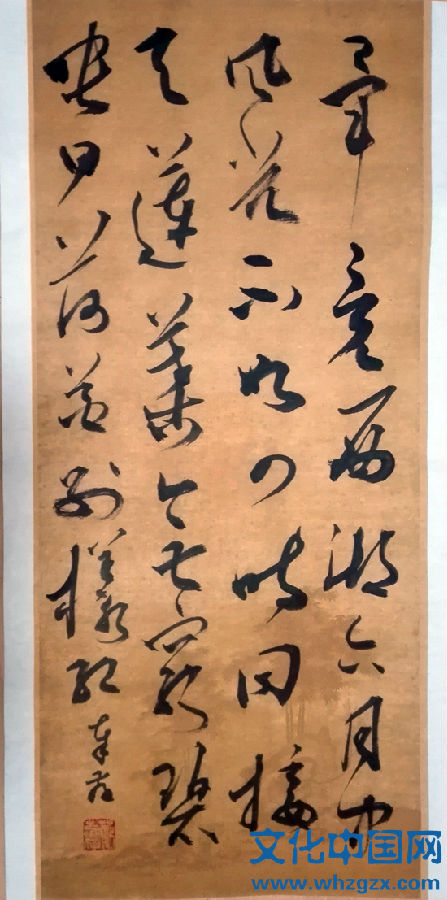 畢竟西湖六月中
風光不與四時同接
天蓮葉無窮碧
映日荷花別樣紅
文化中国网
www.whzgzx.com